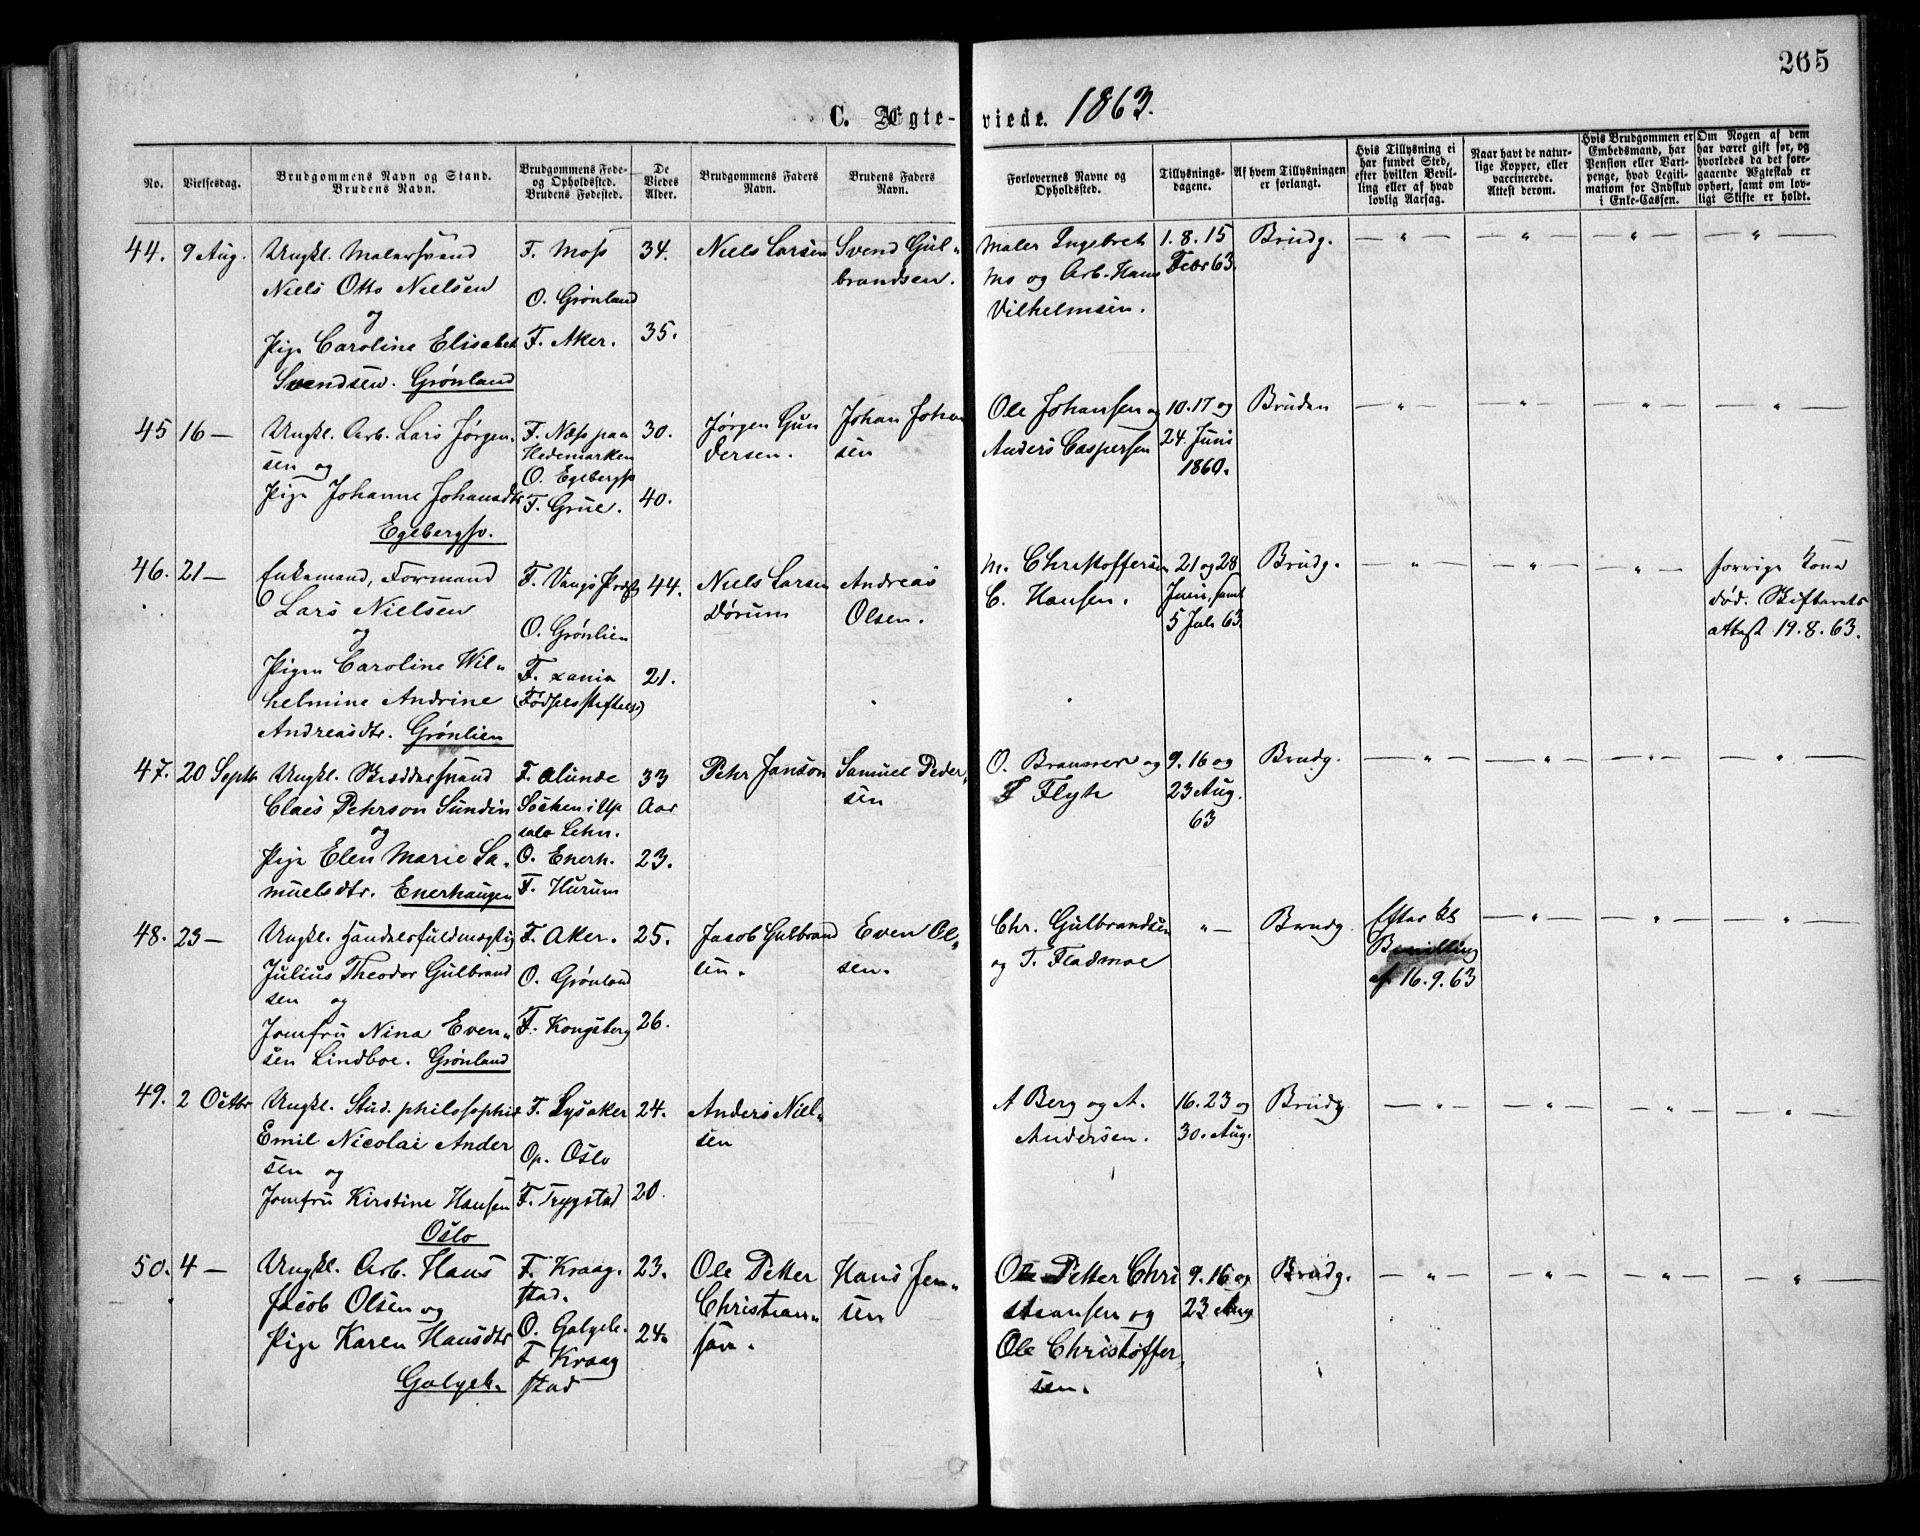 265
C. Ægteviede. 1863.
No.
Vielsesdag.
Brudgommens Navn og Stand.
Brudens Navn.
Brudgommens Fede-
og Opholdssted.
Brudens Fødested.
De
Viedes
Alder.
Brudgommens Faders
Navn.
Brudens Faders
Navn.
Forlovernes Navne og
Opholdssted.
Tillysnings-
dagene.
Af hvem Tillysningen
er forlangt.
Hvis Tillysning ei
har fundet Sted,
efter hvilken Bevil-
ling eller af hvad
lovlig Aarsag.
Naar havt de natur-
lige Kopper, eller
vaccinerede.
Attest derom.
Hvis Brudgommen er
Embedsmand, har
Pension eller Vart-
penge, hvad Legiti-
mation for Indskud
i Enke-Cassen.
Om Nogen af dem
har været gift før, og
hvorledes da det fore-
gaaende Ægteskab er
ophørt, samt om lov-
ligt Skifte er holdt.
44.
9 Aug.
Ungkl. Malersvend
Niels Otto Nielsen
og
Pige Caroline Elisabet
Svendsen. Grönland
F. Moss
O. Grönland
F. Aker.
34.
35.
Niels Larsen
Svend Gul-
brandsen.
Maler Ingebret
Mo og Arb. Hans
Vilhelmsen.
1. 8. 15
Febr 63.
Brudg.
— " —
— " —
— " —
— " —
45
16 —
Ungkl. Arb. Lars Jørgen-
sen og
Pige Johanne Johansdtr
Egebergsv.
F. Næs paa
Hedemarken
O. Egebergsv
F. Grue.
30.
40.
Jørgen Gun
dersen.
Johan Johan
sen
Ole Johansen og
Anders Caspersen
10. 17 og
24 Juni
1860.
Bruden
— " —
— " —
— " —
— " —
46.
21 —
Enkemand, Formand
Lars Nielsen
og
Pigen Caroline Wil-
helmine Andrine
Andreasdtr. Grönlien
F. Vangs Præst
O. Grönlien
F. xania
(Fødselsstiftelse)
44.
21.
Niels Larsen
Dørum
Andreas
Olsen.
M. Christoffersen
C. Hansen.
21 og 28
Juni, samt
5 Juli 63.
Brudg.
— " —
— " —
— " —
forrige Kone
død. Skifterets
attest 19. 8. 63.
47.
20 Septb.
Ungkl. Bræddersvend
Claes Pehrson Sundin
og
Pige Elen Marie Sa-
muelsdtr. Enerhaugen
F. Alunde
Socken i Up
sala Lehn.
O. Enerh.
F. Hurum
33
Aar
23.
Pehr Janson
Samuel Peder-
sen
O. Bransrer og
F Flyh
9. 16 og
23 Aug.
63
Brudg.
— " —
— " —
— " —
— " —
48.
23 —
Ungkl. Handelsfuldmægtig
Julius Theodor Gulbrand
sen og
Jomfru Nina Even-
sen Lindboe. Grönland
F. Aker.
O. Grönland
F. Kongsberg
25.
26.
Jacob Gulbrand
sen.
Even Ol-
sen.
Chr. Gulbrandsen
og T. Fladmoe
" —
Brudg
Efter kgl
Bevilling
af 16. 9. 63
— " —
— " —
— " —
49.
2 Octbr
Ungkl. Stud. philosophie
Emil Nicolai Ander
sen og
Jomfru Kirstine Hansen
Oslo
F. Lysaker
Op. Oslo
F. Trygstad
24.
20.
Anders Niel-
sen
A Berg og A.
Andersen.
16. 23 og
30. Aug.
Brudg
— " —
— " —
— " —
— " —
50.
4 —
Ungkl. Arb. Hans
Jacob Olsen og
Pige Karen Hansdtr
Galgeb.
F. Kraag-
stad.
O. Galgeb.
F Kraag
stad
23.
24.
Ole Petter
Christian-
sen.
Hans Jen-
sen
Ole Petter Chri
stiansen og
Ole Christoffer-
sen.
9. 16 og
23 Aug
Brudg.
— " —
— " —
— " —
— " —